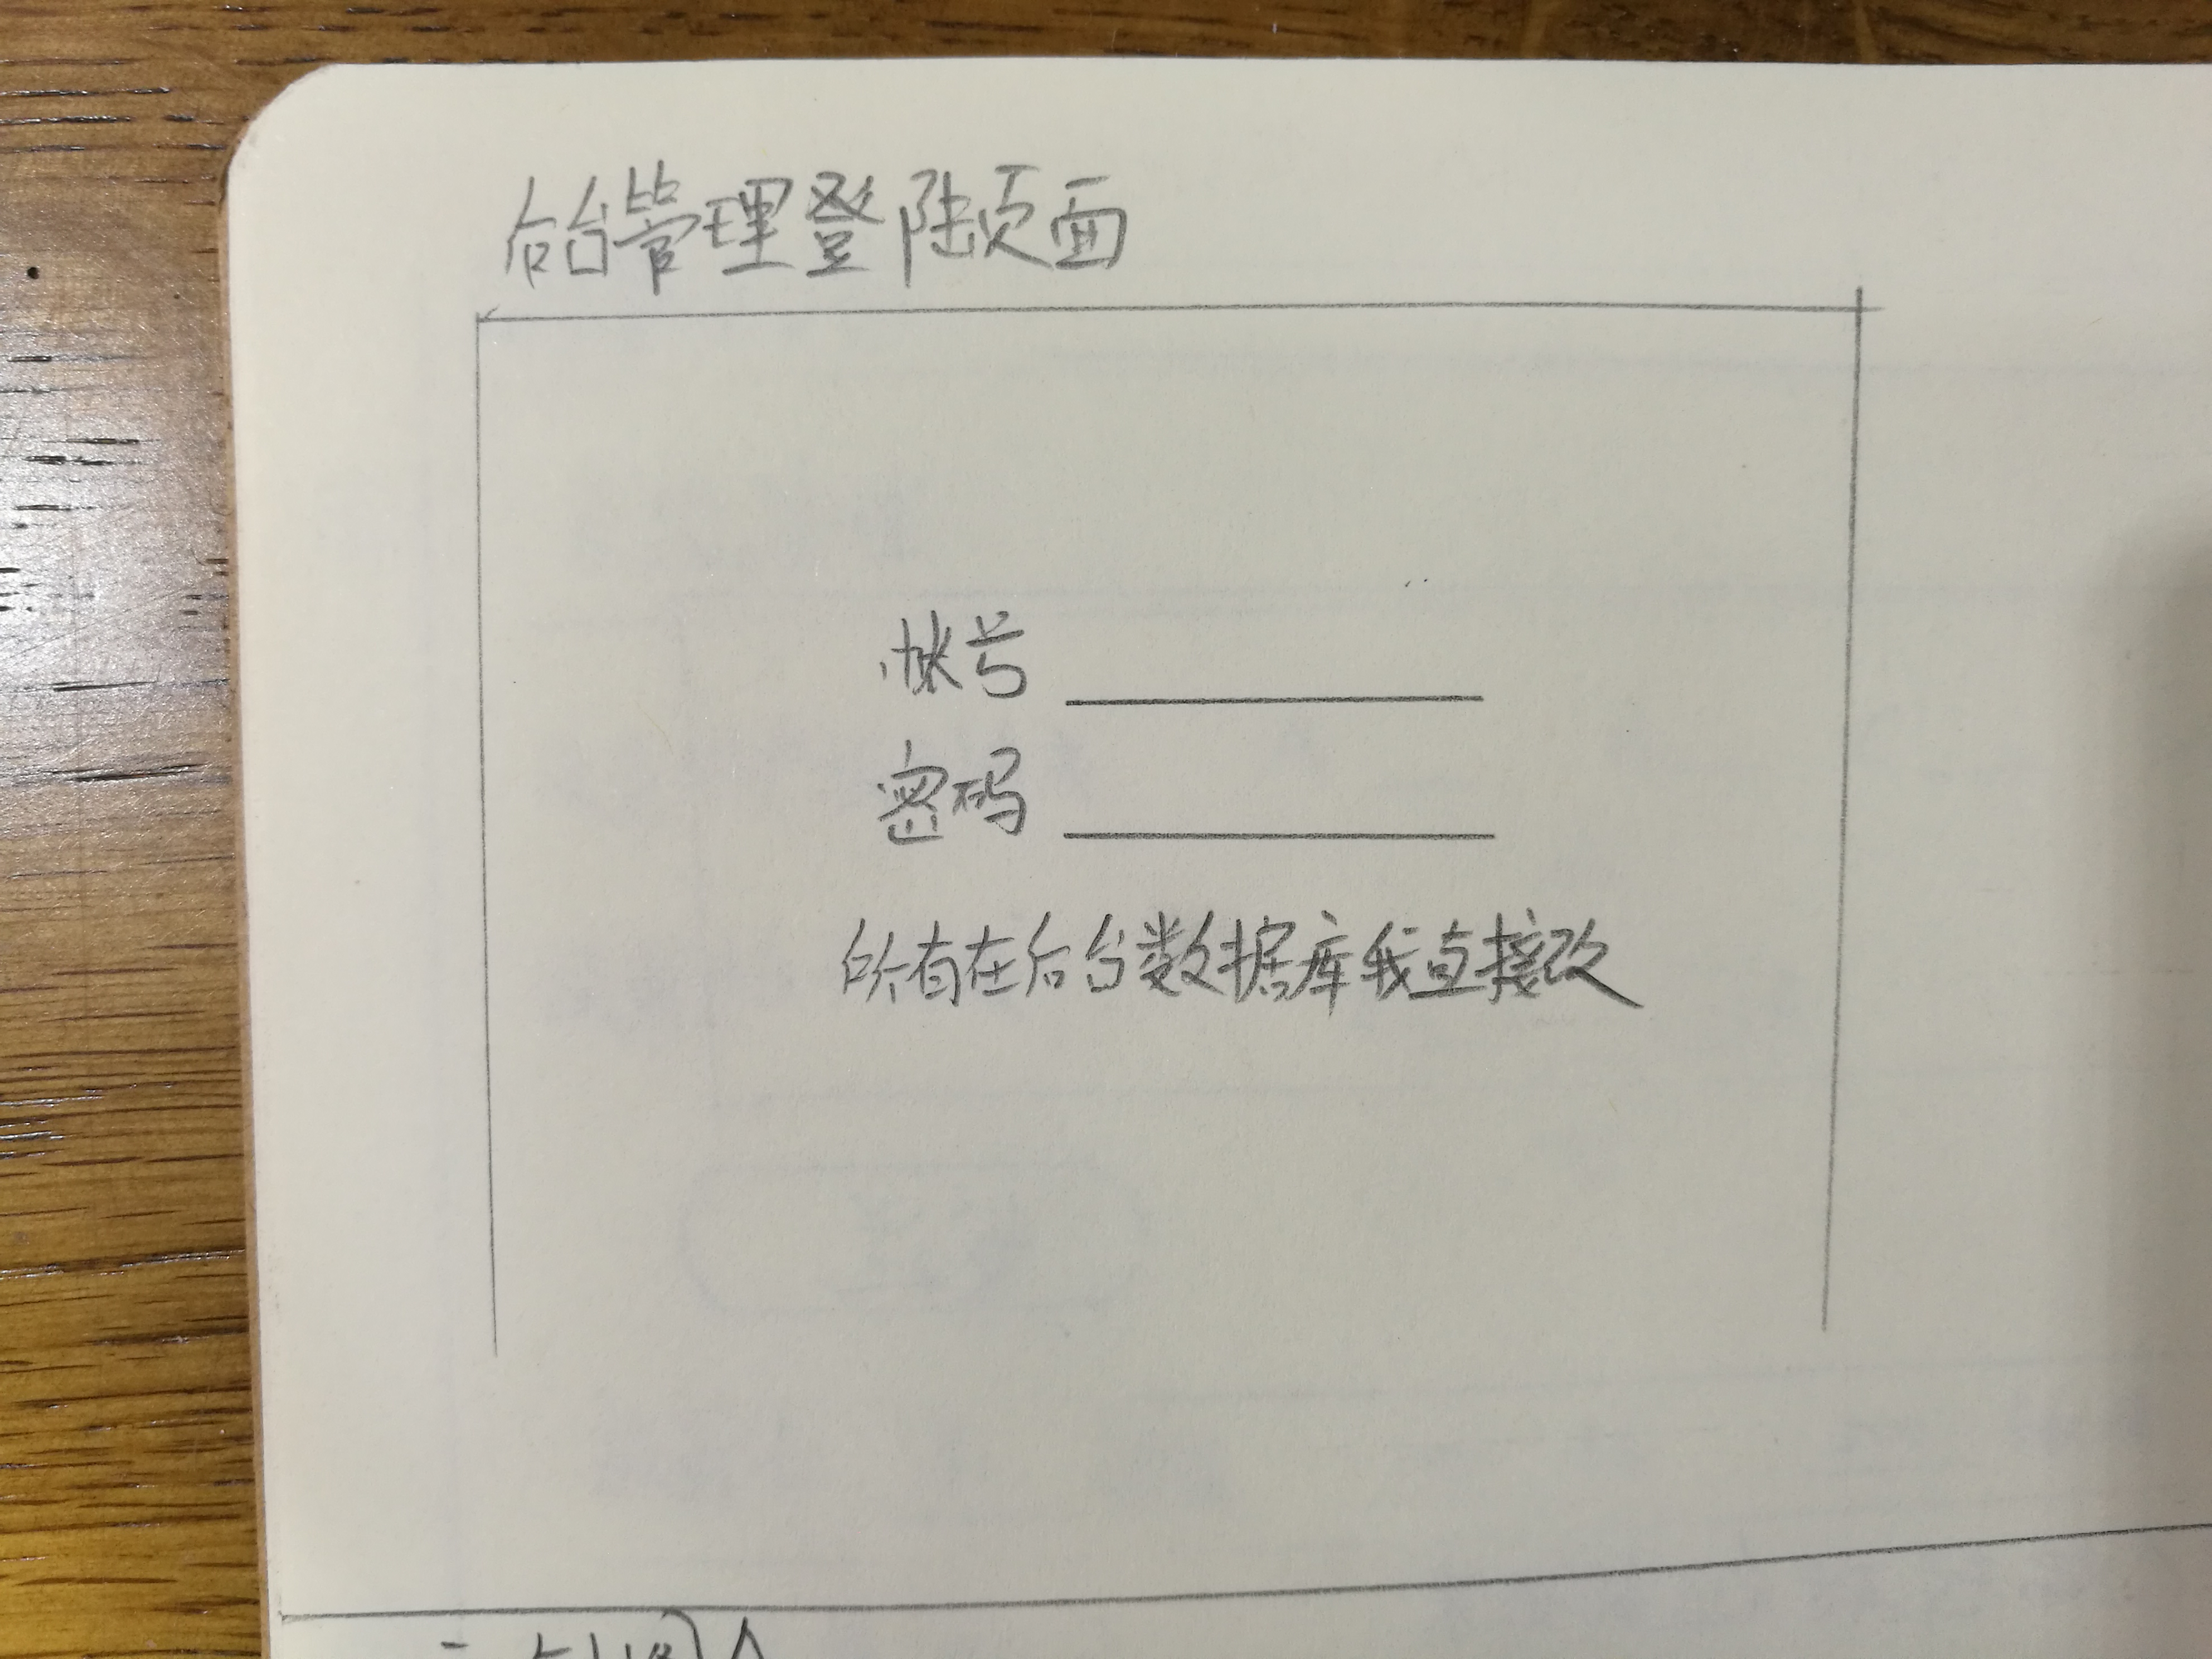 后台管理登陆页面
帐号
密码
所有在后台数据库我直接改